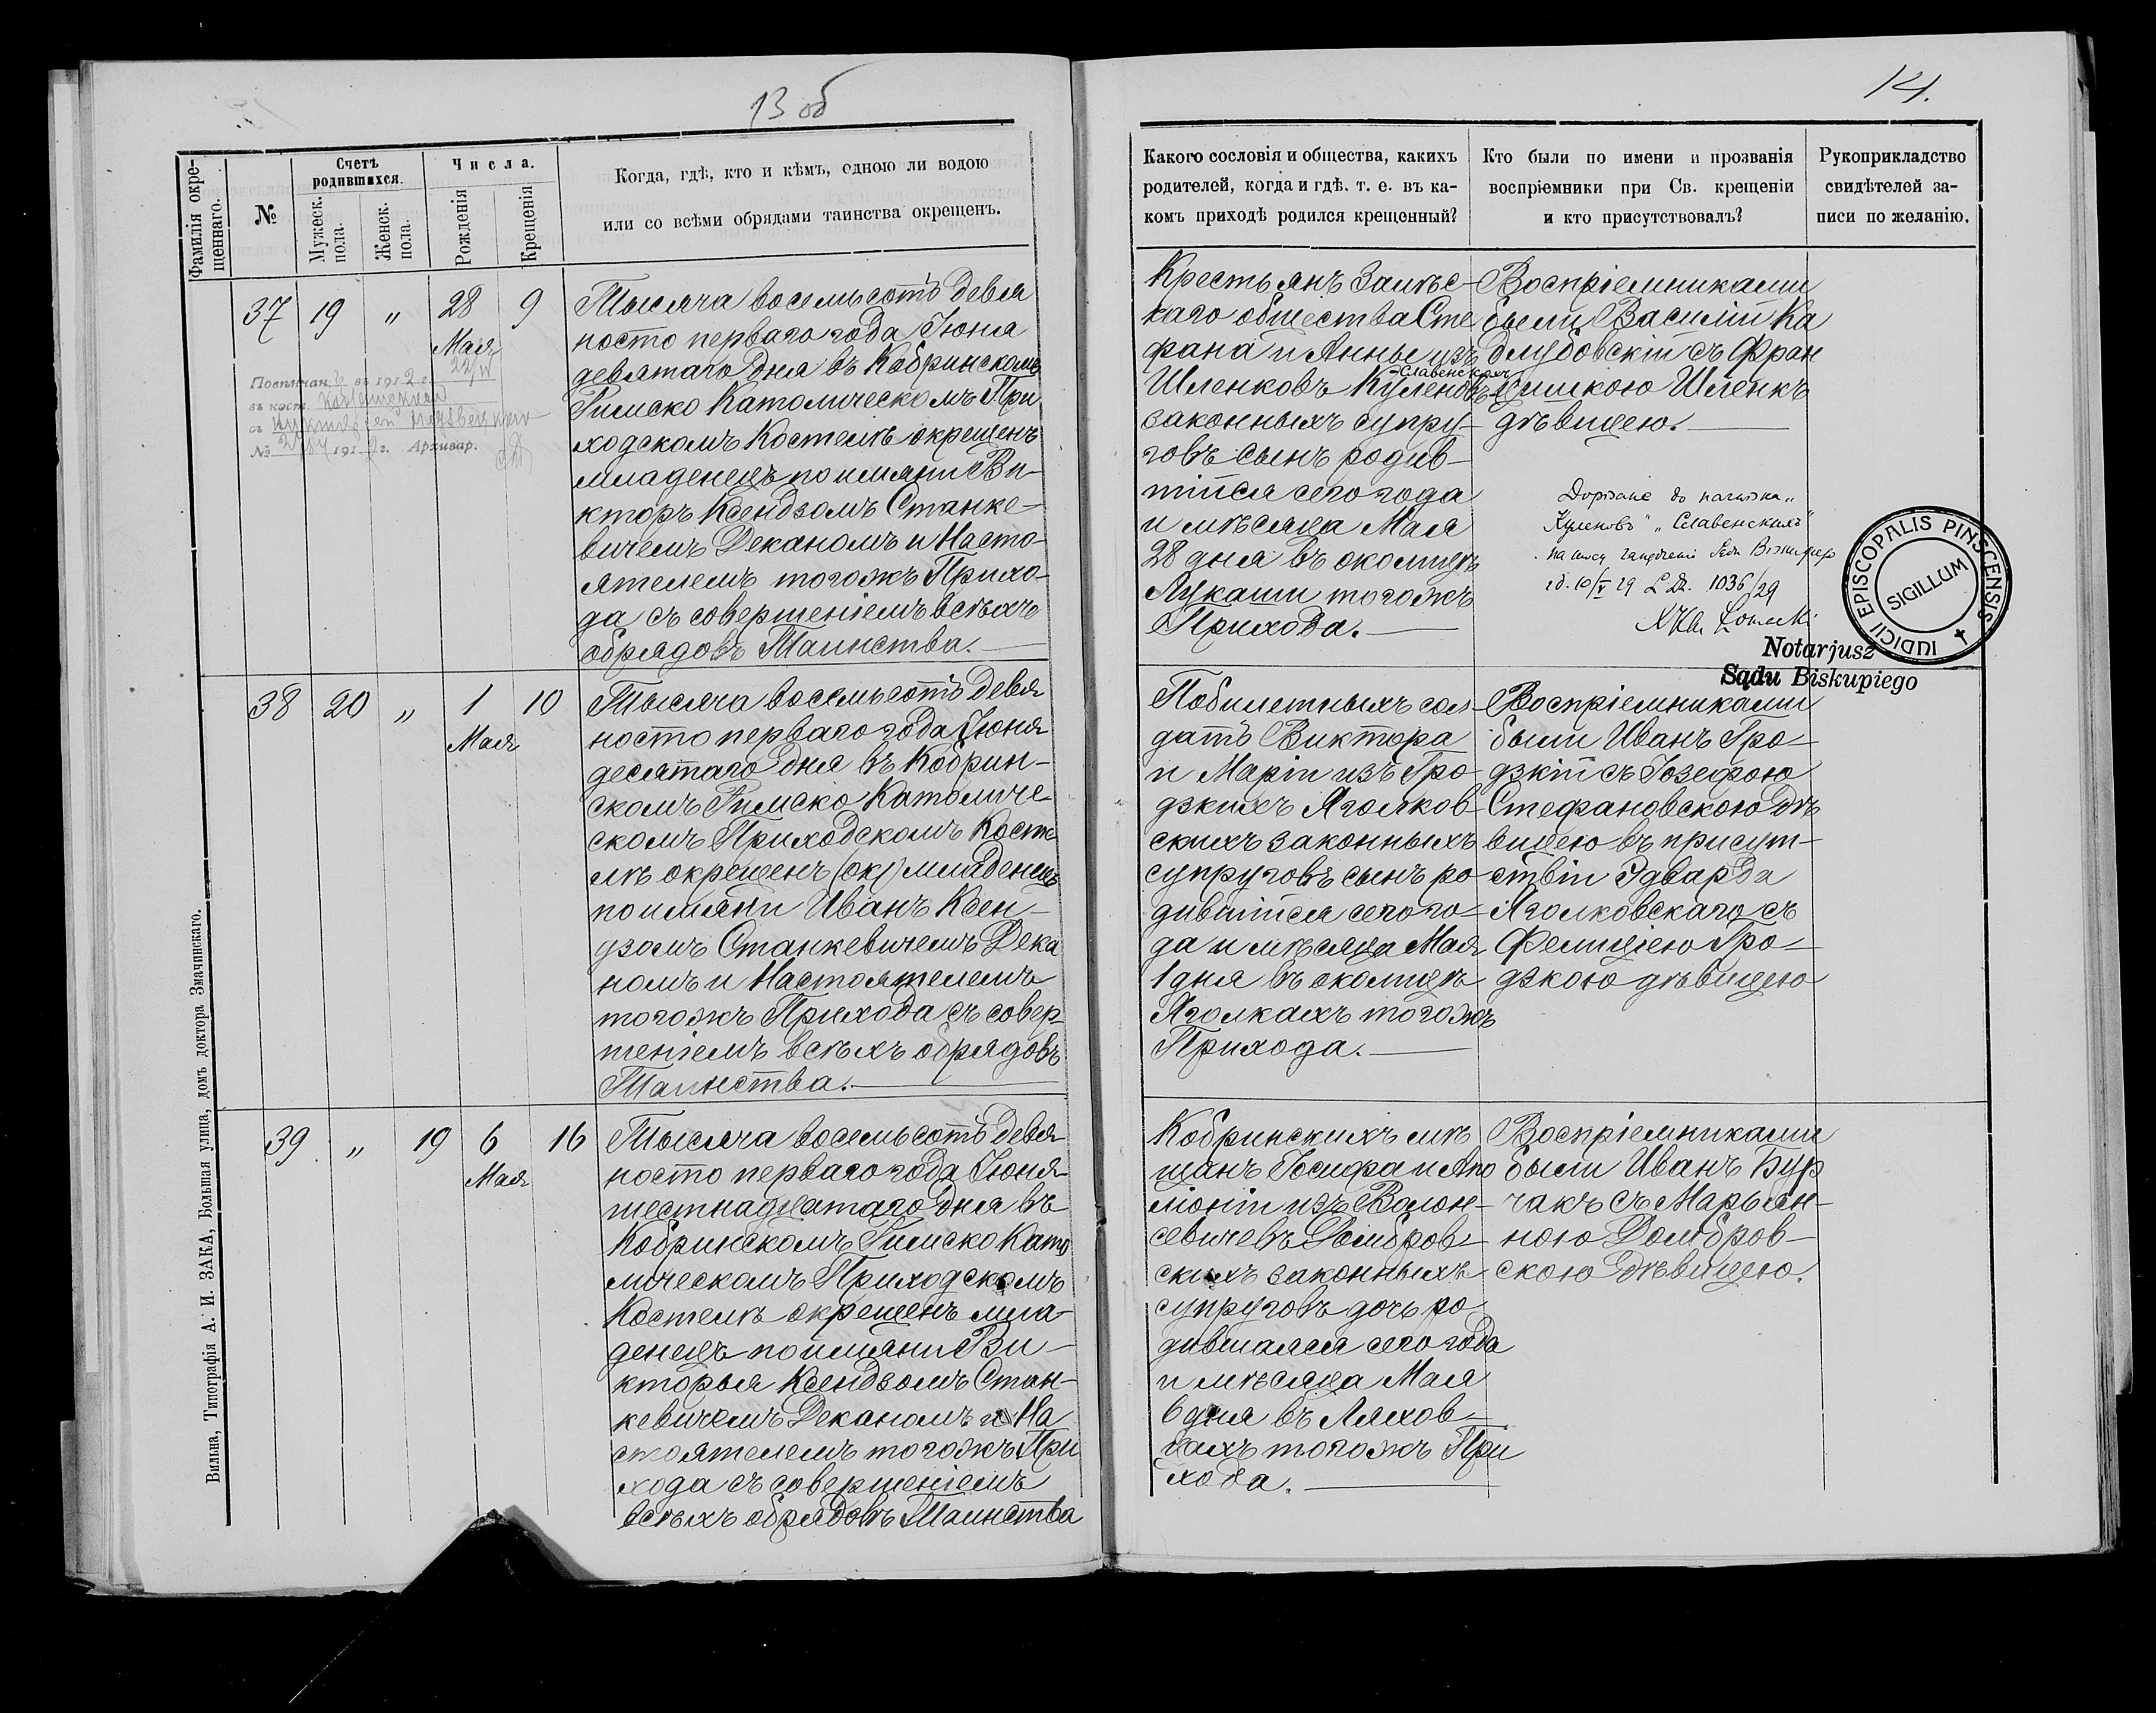 13 об
14.
Фамилія окре-
щеннаго.
№
Счетъ
родившихся.
Мужеск.
пола.
Женск.
пола.
Числа.
Рожденія
Крещенія
Когда, гдѣ, кто и кѣмъ, одною ли водою
или со всѣми обрядами таинства окрещенъ.
Какого сословія и общества, какихъ
родителей, когда и гдѣ. т. е. въ ка-
комъ приходѣ родился крещенный?
Кто были по имени и прозванія
воспріемники при Св. крещеніи
и кто присутствовалъ?
Рукоприкладство
свидѣтелей за-
писи по желанію.
37 19 " 28 9
Мая
Повѣнчан въ 1912 г. 22/IV
въ кост.
съ
№ 191 г. Архивар.
Тысяча восемьсотъ девя
носто перваго года Іюня
девятаго дня въ Кобринскомъ
Римско Католическомъ При
ходскомъ Костелѣ окрещенъ
младенецъ по имяни Ви-
кторъ Ксендзомъ Станке-
вичемъ Деканомъ и Насто-
ятелемъ тогожъ Прихо-
да съ совершеніемъ всѣхъ
обрядовъ Таинства.
Крестьянъ Залѣс-
каго общества Сте
фана и Анны изъ
-Славенскихъ
Шленковъ Куленовъ
законныхъ супру-
говъ сынъ родив-
шійся сего года
и мѣсяца Мая
28 дня въ околицѣ
Лукаши тогожъ
Прихода.
Воспріемниками
были Василій Ка
длубовскій съ Фран
цишкою Шленкъ
дѣвицею.
Dopisane do nazwiska „
Куленовъ" „Славенскихъ"
na mocy Sądu Biskupiego
zd. 10/V 29 L. Dz. 1036/29
Notarjusz
Sądu Biskupiego
IUDICII EPISCOPALIS PINSCENSIS
SIGILLUM
38 20 " 1 10
Мая
Тысяча восемьсотъ девя
носто перваго года Іюня
десятаго дня въ Кобрин-
скомъ Римско Католиче-
скомъ Приходскомъ Косте
лѣ окрещенъ (окр) младенецъ
по имяни Иванъ Ксен-
дзомъ Станкевичемъ Дека
номъ и Настоятелемъ
тогожъ Прихода съ совер-
шеніемъ всѣхъ обрядовъ
Таинства.
Побилетныхъ сол-
датъ Виктора
и Маріи изъ Гро-
дзкихъ Яголков-
скихъ законныхъ
супруговъ сынъ ро-
дившійся сего го-
да и мѣсяца Мая
1 дня въ околицѣ
Яголкахъ тогожъ
Прихода.
Воспріемниками
были Иванъ Гро-
дзкій съ Іозефою
Стефановскою дѣ
вицею въ присут-
ствіи Эдварда
Яголковскаго съ
Фелиціею Гро-
дзкою дѣвицею
39 " 19 6 16
Мая
Тысяча восемьсотъ девя
носто перваго года Іюня
шестнадцатаго дня въ
Кобринскомъ Римско Като
лическомъ Приходскомъ
Костелѣ окрещенъ мла-
денецъ по имяни Ви-
кторья Ксендзомъ Стан-
кевичемъ Деканомъ и На
стоятелемъ тогожъ При
хода съ совершеніемъ
всѣхъ обрядовъ Таинства
Кобринскихъ мѣ
щанъ Іосифа и Апо
лоніи изъ Волон-
севичевъ Домбров-
скихъ законныхъ
супруговъ дочь ро
дившаяся сего года
и мѣсяца Мая
6 дня въ Ляхов-
цахъ тогожъ При
хода.
Воспріемниками
были Иванъ Бур
чакъ съ Марьян-
ною Домбров-
скою дѣвицею.
Вильна, Типографія А. И. ЗАКА, Большая улица, домъ доктора Змачинскаго.